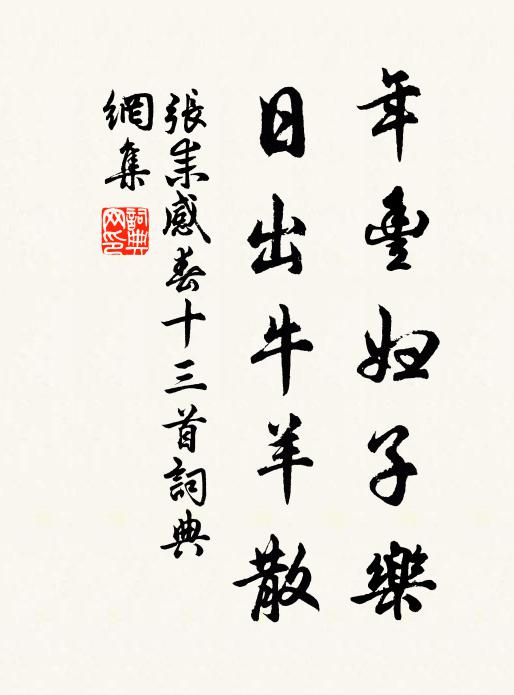 年豐婦子樂
日出牛羊散
張耒感春十三首詞典
網集
詞典
网印